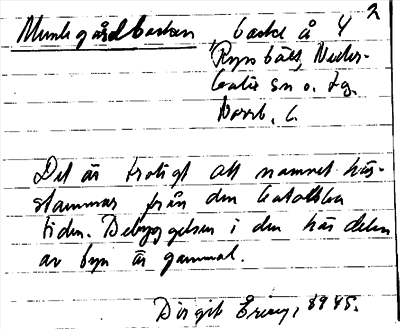 Munkgårdbacken, backe å 4 2
Rysbält, Neder-
kalix sn o. tg.
Norrb. l.
Det är troligt att namnet här-
stammar från den katolska
tiden. Bebyggelsen i den här delen
av byn är gammal.
Birgit Ericz, 1945.